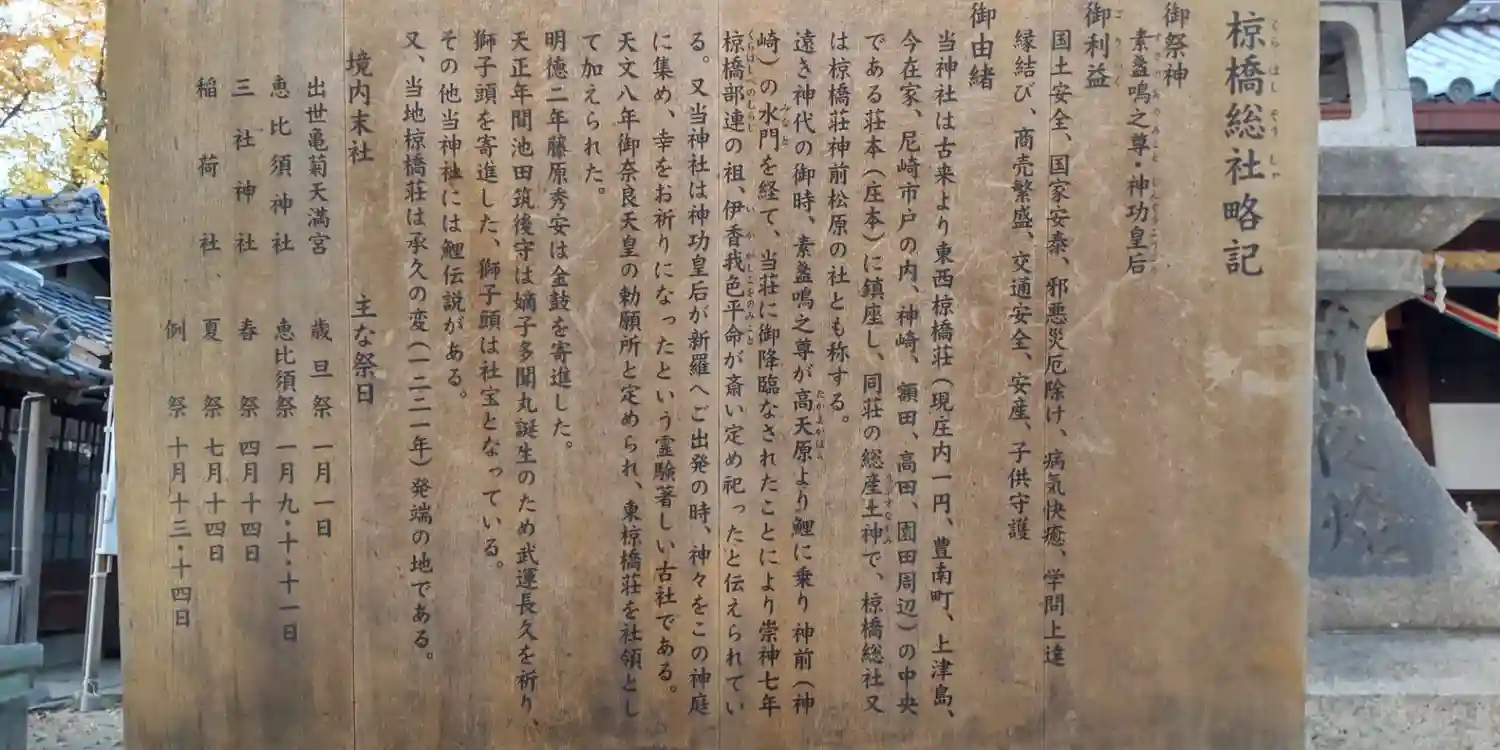 椋橋総社略記
御祭神
素盞鳴之尊・神功皇后
御利益
国土安全、国家安泰、邪悪災厄除け、病気快癒、学問上達
縁結び、商売繁盛、交通安全、安産、子供守護
御由緒
当神社は古来より東西椋橋荘（現庄内一円、豊南町、上津島、
今在家、尼崎市戸の内、神崎、額田、高田、園田周辺）の中央
である荘本（庄本）に鎮座し、同荘の総産土神で、椋橋総社又
は椋橋荘神前松原の社とも称する。
遠き神代の御時、素盞鳴之尊が高天原より鯉に乗り神前（神
崎）の水門を経て、当荘に御降臨なされたことにより崇神七年
椋橋部連の祖、伊香我色乎命が斎い定め祀ったと伝えられてい
る。又当神社は神功皇后が新羅へご出発の時、神々をこの神庭
に集め、幸をお祈りになったという霊験著しい古社である。
天文八年御奈良天皇の勅願所と定められ、東椋橋荘を社領とし
て加えられた。
明徳二年藤原秀安は金鼓を寄進した。
天正年間池田筑後守は嫡子多聞丸誕生のため武運長久を祈り、
獅子頭を寄進した、獅子頭は社宝となっている。
その他当神社には鯉伝説がある。
又、当地椋橋荘は承久の変（一二二一年）発端の地である。
境内末社　主な祭日
出世亀菊天満宮　歳旦祭　一月一日
恵比須神社　恵比須祭　一月九・十・十一日
三社神社　春祭　四月十四日
稲荷社　夏祭　七月十四日
例祭　十月十三・十四日